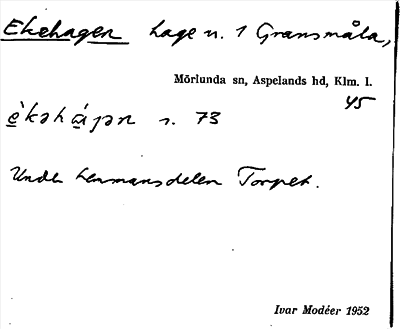 Ekehagen hage n. 1 Gransmåla,
Mörlunda sn, Aspelands hd, Klm. l.
45
è̱kəhá̱gən s. 73
Under hemmansdelen Torpet.
Ivar Modéer 1952